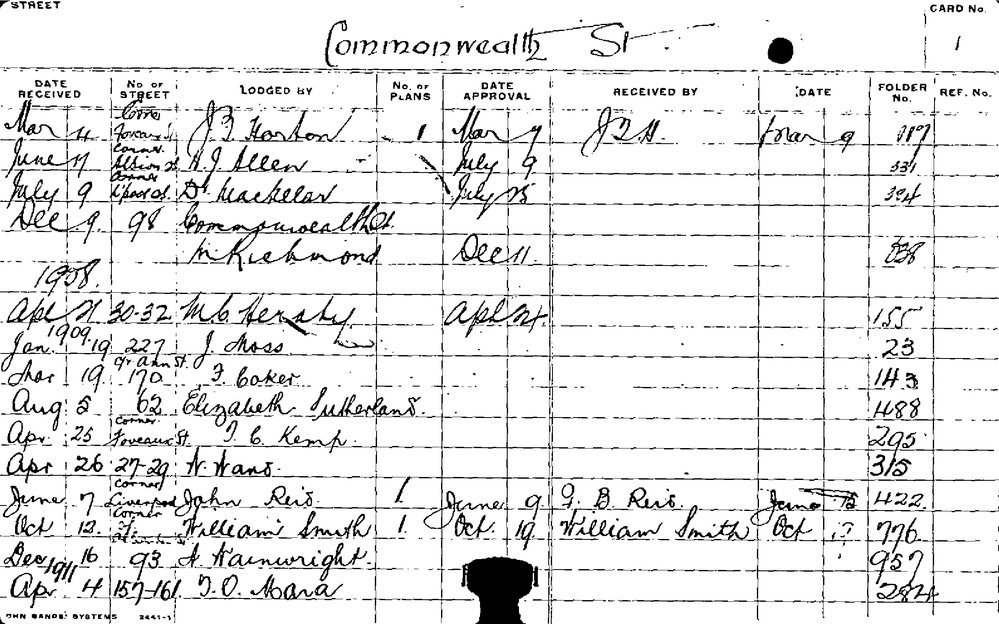 STREET
CARD No.
Commonwealth St.
1
DATE RECEIVED No. OF STREET LODGED BY No. OF PLANS DATE APPROVAL RECEIVED BY DATE FOLDER No. REF. No.
Corner
Mar 4 Foveaux J F Horton 1 Mar 7 J F H. Mar 9
Corner
June 17 Albion St H. J. Allen July 9
Corner
July 9 L'pool St. Dr. MacKellar July 25
Dec 9. 98 Commonwealth St.
Richmond Dec 11. 838
1908.
Apl 21 30-32 M. C. Apl 24. 155
1909.
Jan. 19 227 J. Moss 23
Cr. Ann St.
Mar 19 170 F. Coker 143
Aug 5 62 Elizabeth Sutherland. 488
corner
Apr 25 Foveaux St. F. C. Kemp. 295
Apr 26 27-29 H. Hand. 315
corner
June 7 Liverpool John Reid. 1. June 9 G. B. Reid. June 422
Corner
Oct 12. William Smith 1. Oct. 19. William Smith Oct 776
Dec 16 93 A. Wainwright. 957
1911
Apr 4 157-161 T. O. Mara 284
JOHN SANDS' SYSTEMS 2441-1